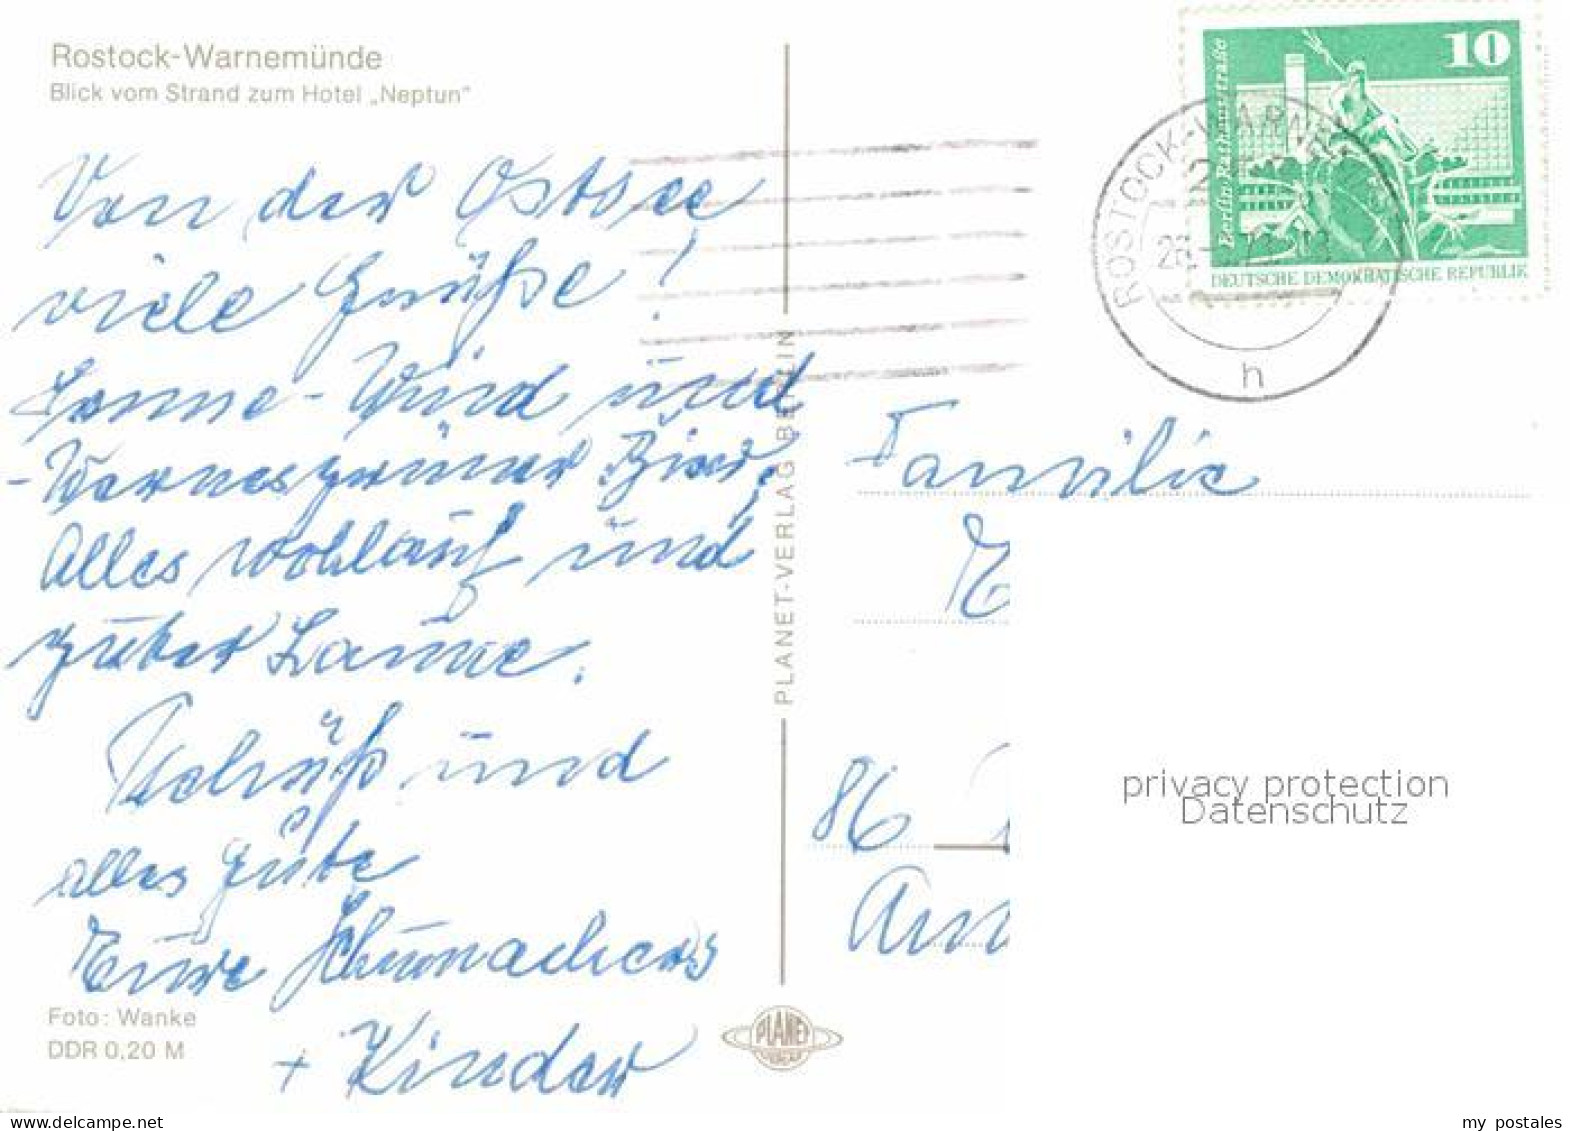 Rostock-Warnemünde
Blick vom Strand zum Hotel „Neptun"
Von der Ostsee
viele Grüße!
Sonne - Wind und
- Wernesgrüner Bier.
Alles wohlauf und
guter Laune.
Tschüß und
alles Gute
Eure Schumachers
+ Kinder
Foto: Wanke
DDR 0,20 M
PLANET-VERLAG BERLIN
PLANET
VERLAG
10
Berlin, Rathausstraße
DEUTSCHE DEMOKRATISCHE REPUBLIK
ROSTOCK-WARNE
h
Familie
86
privacy protection
Datenschutz
my postales